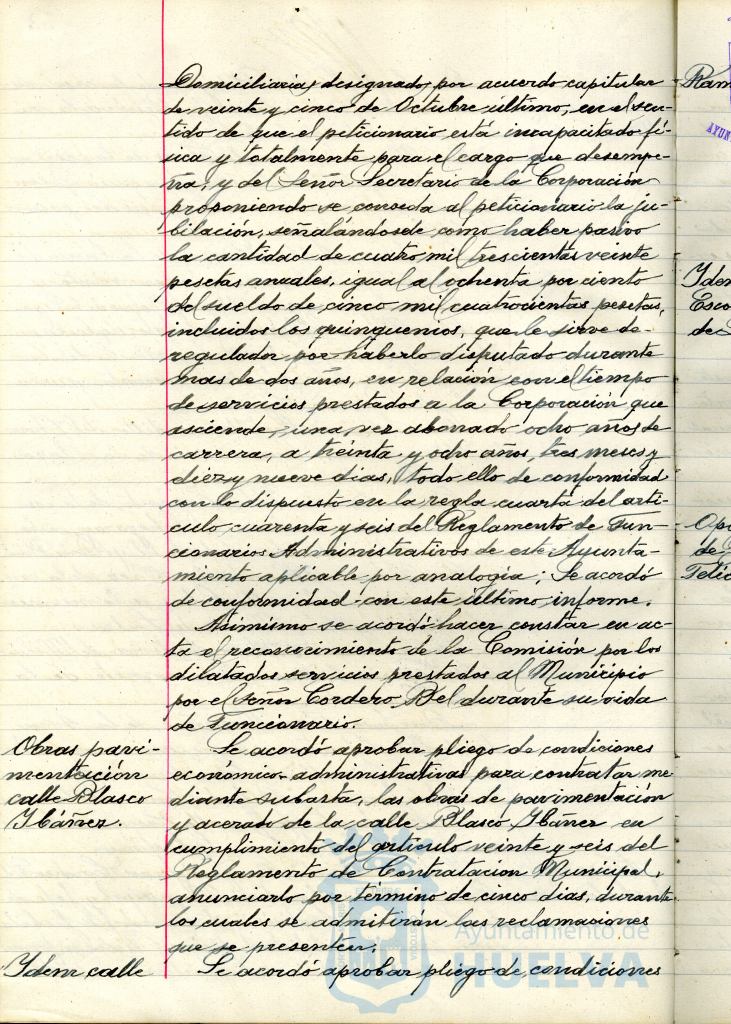 Domiciliaria, designado, por acuerdo capitular
de veinte y cinco de Octubre último, en el sen-
tido de que el peticionario está incapacitado fí-
sica y totalmente para el cargo que desempe-
ña, y del Señor Secretario de la Corporación
proponiendo se conceda al peticionario la ju-
bilación, señalándosele como haber pasivo
la cantidad de cuatro mil trescientas veinte
pesetas anuales, igual al ochenta por ciento
del sueldo de cinco mil cuatrocientas pesetas,
incluidos los quinquenios, que le sirve de
regulador por haberlo disputado durante
mas de dos años, en relación con el tiempo
de servicios prestados a la Corporación que
asciende, una vez abonado ocho años de
carrera, a treinta y ocho años, tres meses y
diez y nueve dias, todo ello de conformidad
con lo dispuesto en la regla cuarta del artí-
culo cuarenta y seis del Reglamento de Fun-
cionarios Administrativos de este Ayunta-
miento aplicable por analogía; Se acordó
de conformidad con este último informe.
Asimismo se acordó hacer constar en ac-
ta el reconocimiento de la Comisión por los
dilatados servicios prestados al Municipio
por el señor Cordero Bel durante su vida
de Funcionario.
Obras pavi-
mentación
calle Blasco
Ibáñez.
Se acordó aprobar pliego de condiciones
económico-administrativas para contratar me-
diante subasta, las obras de pavimentación
y acerado de la calle Blasco Ibáñez en
cumplimiento del artículo veinte y seis del
Reglamento de Contratacion Municipal,
anunciarlo por término de cinco dias, durante
los cuales se admitirán las reclamaciones
que se presenten.
Idem calle
Se acordó aprobar pliego de condiciones
Ram
Idem
Esco
de
de
Ayuntamiento de
HUELVA